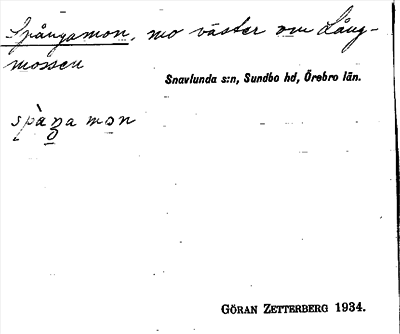 Spångamon, mo väster om Lång-
mossen
Snavlunda s:n, Sundbo hd, Örebro län.
spàŋa mɔn
GÖRAN ZETTERBERG 1934.